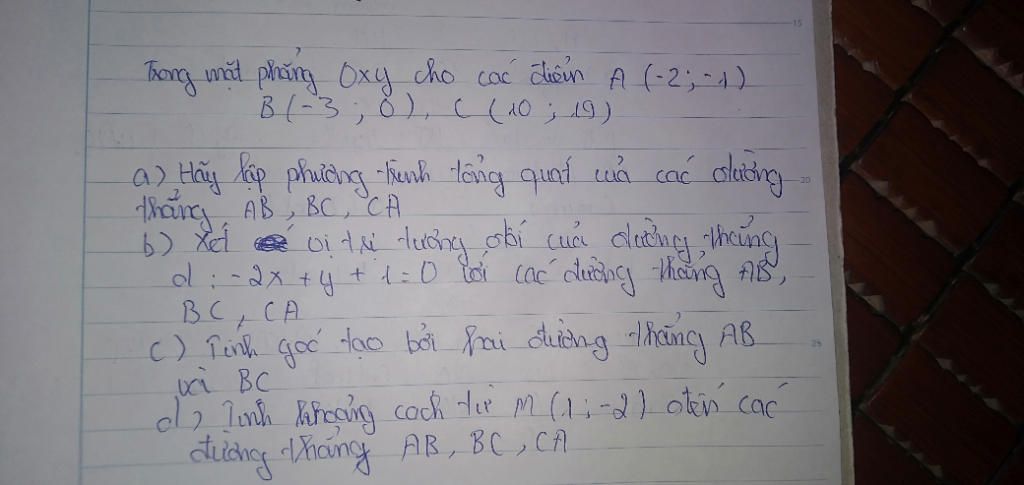 Trong mặt phẳng Oxy cho các điểm A (-2; -1)
B (-3 ; 0), C (10 ; 19)
a) Hãy lập phương trình tổng quát của các đường
thẳng AB, BC, CA
b) Xét vị trí tương đối của đường thẳng
d : -2x + y + 1 = 0 với các đường thẳng AB,
BC, CA
c) Tính góc tạo bởi hai đường thẳng AB
và BC
d) Tính khoảng cách từ M (1 ; -2) đến các
đường thẳng AB, BC, CA
15
20
25